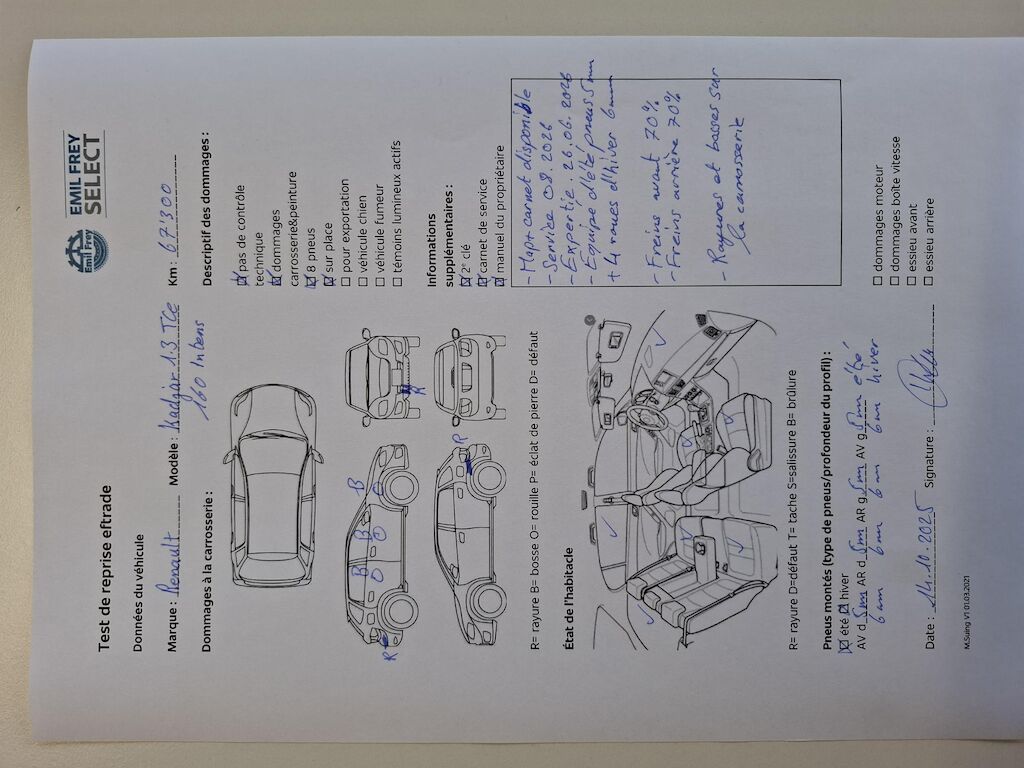 Test de reprise eftrade
Emil Frey
EMIL FREY
SELECT
Données du véhicule
Marque : Renault Modèle : Kadjar 1.3 TCe Km : 67300
160 Intens
Dommages à la carrosserie :
Descriptif des dommages :
pas de contrôle
technique
dommages
carrosserie&peinture
8 pneus
sur place
pour exportation
véhicule chien
véhicule fumeur
témoins lumineux actifs
R
B
B
B
R
R
Informations
supplémentaires :
2° clé
carnet de service
manuel du propriétaire
R= rayure B= bosse O= rouille P= éclat de pierre D= défaut
- Map+carnet disponible
- Service 08.2026
- Expertie. 26.06.2026
- Equipé d'été pneus 5mm
+ 4 roues d'hiver 6mm
- Freins avant 70%
- Freins arrière 70%
- Rayures et bosses sur
la carrosserie
État de l'habitacle
R= rayure D=défaut T= tache S=salissure B= brûlure
Pneus montés (type de pneus/profondeur du profil) :
été hiver
AV d 5mm AR d 5mm AR g 5mm AV g 5mm été
6mm 6mm 6mm 6mm hiver
dommages moteur
dommages boîte vitesse
essieu avant
essieu arrière
Date : 14.11.2025 Signature :
M.Suing V1 01.03.2021